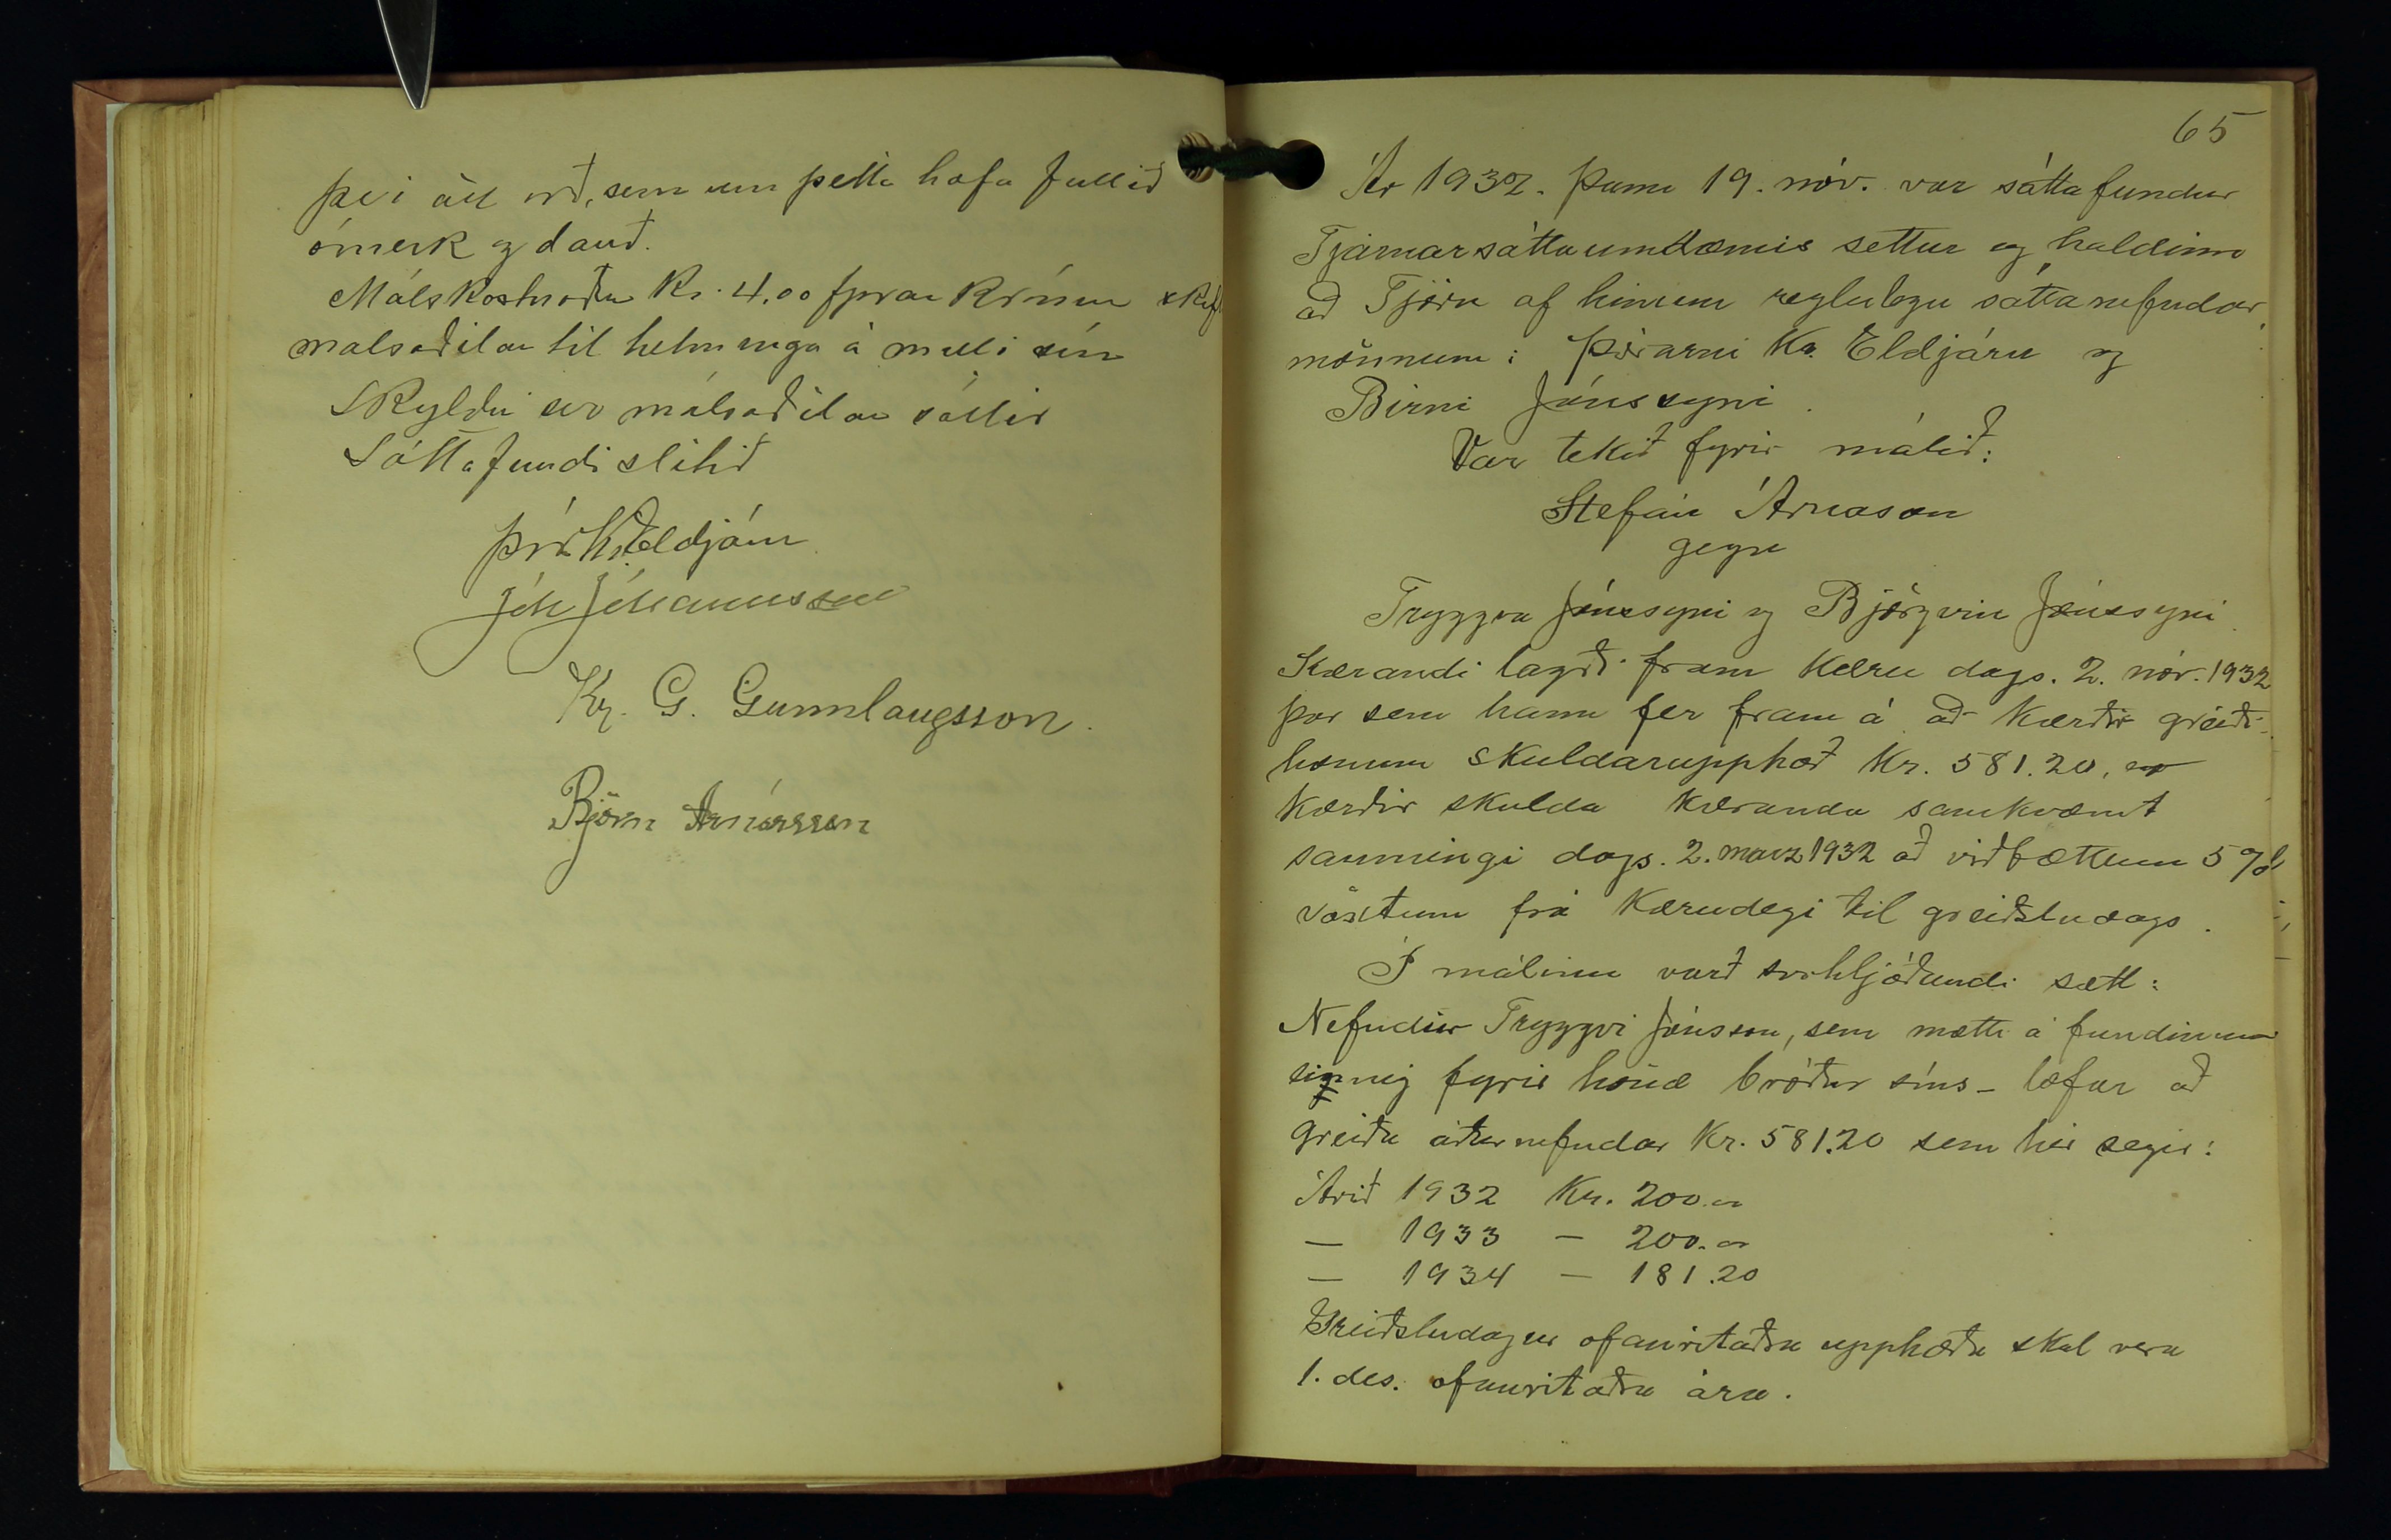 því öll orð, sem um þetta hafa fallið
ómerk og dauð.
Málskostnaðu Kr. 4.00 fjórar Krónur skift
malsaðilar til helminga á milli sín
Skyldu svo málsaðilar sáttir
Sáttafundi slitið
Þór. Kr. Eldjárn
Jóh Jóhannsson
Kr. G. Gunnlaugsson.
Björn Arnórsson
65
Ár 1932. Þann 19. nóv. var sáttafundur
Tjarnarsáttaumdæmis settur og haldinn
að Tjörn af hinum reglulegu sáttanefndar
mönnum: Þórarni Kr. Eldjárn og
Birni Jónssyni.
Var tekið fyrir málið:
Stefán Árnason
gegn
Tryggva Jónssyni og Björgvin Jónssyni.
Kærandi lagði fram Kæru dags. 2. nóv. 1932
þar sem hann fer fram á að Kærðir greiði
honum skuldarupphæð Kr. 581.20, er
Kærðir skulda Kæranda samkvæmt
samningi dags. 2. marz 1932 að viðbættum 5%
vöxtum frá Kærudegi til greiðsludags.
Í málinu varð svohljóðandi sætt:
Nefndur Tryggvi Jónsson, sem mætti á fundinum
einnig fyrir hönd bróður síns - lofar að
greiða áðurnefndar Kr. 581.20 sem hér segir:
Árið 1932 Kr. 200.00
— 1933 — 200.00
— 1934 — 181.20
Greiðsludagur ofanritaðra upphæða skal vera
1. des. ofanritaðra ára.